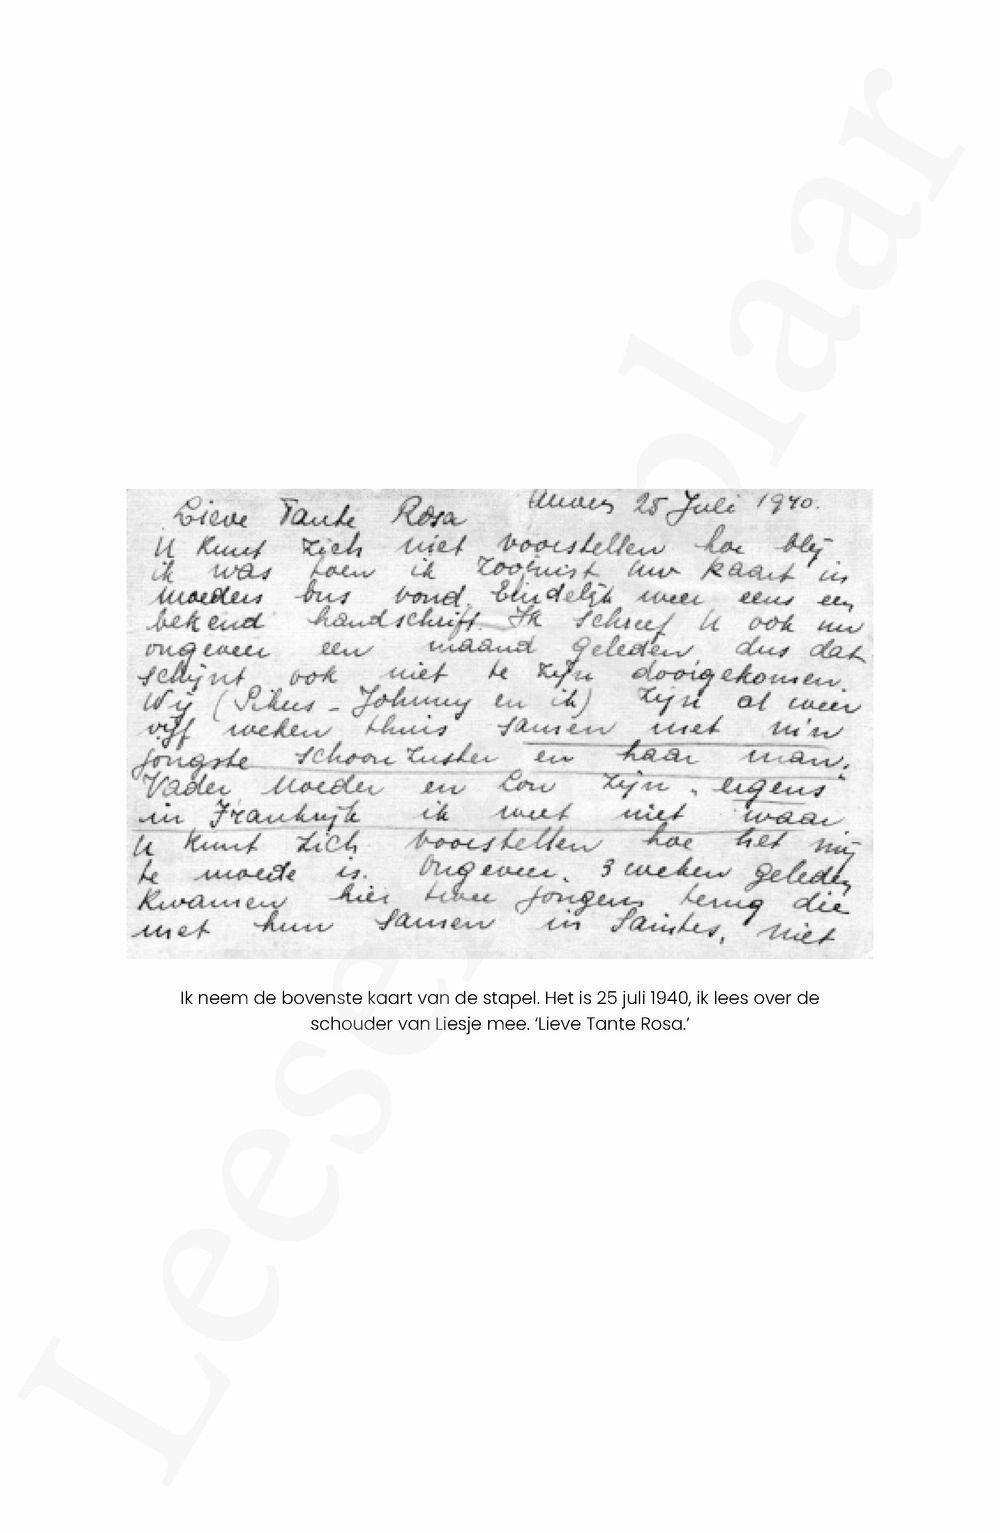 Anvers 25 Juli 1940.
Lieve Tante Rosa
U kunt zich niet voorstellen hoe blij
ik was toen ik zoojuist uw kaart in
moeders bus vond. Eindelijk weer eens een
bekend handschrift. Ik schreef U ook nu
ongeveer een maand geleden dus dat
schijnt ook niet te zijn doorgekomen.
Wij (Pikus - Johnny en ik) zijn al weer
vijf weken thuis samen met m'n
jongste schoonzuster en haar man.
Vader Moeder en Lou zijn "ergens"
in Frankrijk ik weet niet waar
U kunt zich voorstellen hoe het mij
te moede is. Ongeveer 3 weken geleden
kwamen hier twee jongens terug die
met hun samen in Saintes, niet
Ik neem de bovenste kaart van de stapel. Het is 25 juli 1940, ik lees over de
schouder van Liesje mee. ‘Lieve Tante Rosa.’